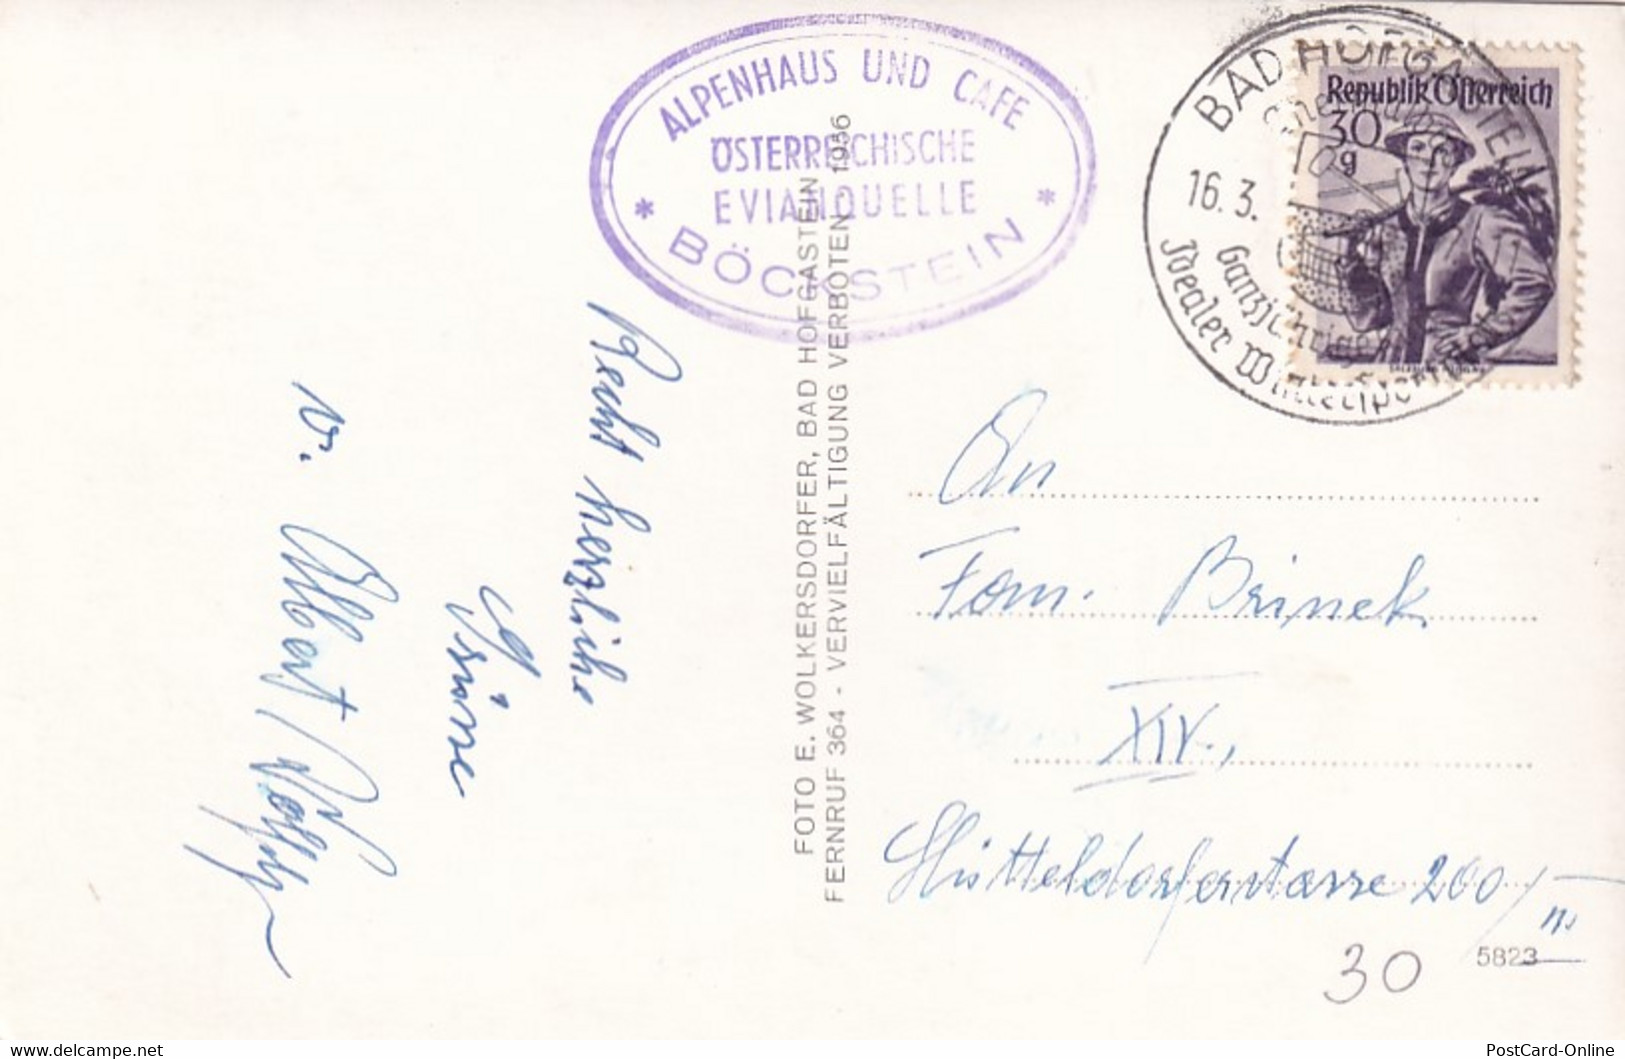 ALPENHAUS UND CAFE
ÖSTERREICHISCHE
EVIANQUELLE
* BÖCKSTEIN *
BAD HOFGASTEIN
16.3.
Ganzjähriger
Idealer Wintersport
Republik Österreich
30
g
Recht herzliche
Grüsse
v. Albert
FOTO E. WOLKERSDORFER, BAD HOFGASTEIN
FERNRUF 364 - VERVIELFÄLTIGUNG VERBOTEN 1956
An
Fam. Brinek
XIV.,
Hütteldorferstrasse 200/
5823
30
PostCard-Online
the-collector